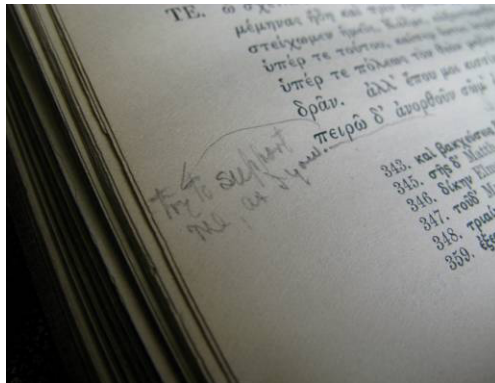 ΤΕ. ὦ
μέμηνας ἤδη καὶ πρὶν
στείχωμεν ἡμεῖς, Κάδμε,
ὑπέρ τε τούτου, καίπερ
ὑπέρ τε πόλεως τὸν θεὸν
δρᾶν. ἀλλ' ἕπου μοι
πειρῶ δ' ἀνορθοῦν σῶμ'
try to support
me, as I you.
343. καὶ
345. σῆς δ' Matth
346. δίκην Elm
347. τοῦδ'
348.
359.